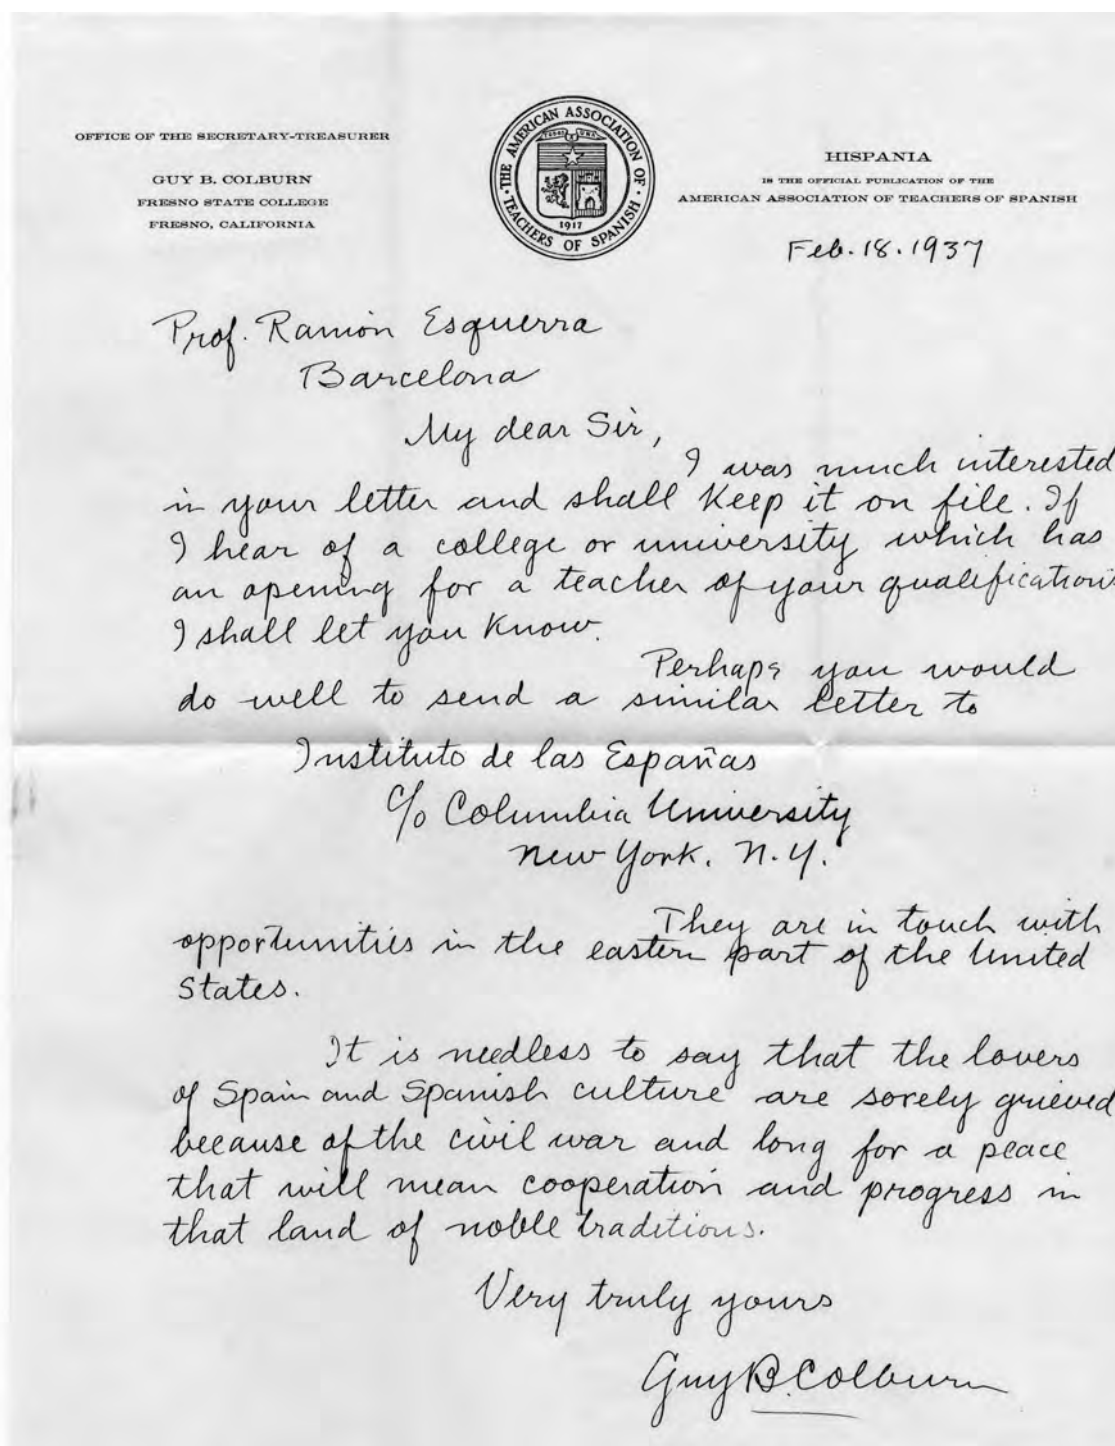 OFFICE OF THE SECRETARY-TREASURER
GUY B. COLBURN
FRESNO STATE COLLEGE
FRESNO, CALIFORNIA
THE AMERICAN ASSOCIATION OF TEACHERS OF SPANISH
1917
HISPANIA
IS THE OFFICIAL PUBLICATION OF THE
AMERICAN ASSOCIATION OF TEACHERS OF SPANISH
Feb. 18. 1937
Prof. Ramón Esquerra
Barcelona
My dear Sir,
I was much interested
in your letter and shall keep it on file. If
I hear of a college or university which has
an opening for a teacher of your qualifications
I shall let you know.
Perhaps you would
do well to send a similar letter to
Instituto de las Españas
c/o Columbia University
New York. N.Y.
They are in touch with
opportunities in the eastern part of the United
States.
It is needless to say that the lovers
of Spain and Spanish culture are sorely grieved
because of the civil war and long for a peace
that will mean cooperation and progress in
that land of noble traditions.
Very truly yours
Guy B. Colburn